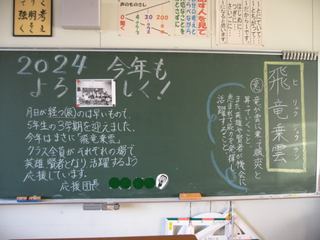 考え
明るく
強く
0 30 200
2024 今年も
よろしく！
月日が経つ(辰)のは早いもので、
5年生の3学期を迎えました。
今年はまさに「飛竜乗雲」
クラス全員がそれぞれの場で
英雄・賢者となり活躍するよう
応援しています。
応援団長
飛竜乗雲
ヒ リュウ ジョウ ウン
意 竜が雲に乗って颯爽と
昇っていくこと。
また英雄や賢者が機会に
恵まれて能力を発揮し、
活躍すること。